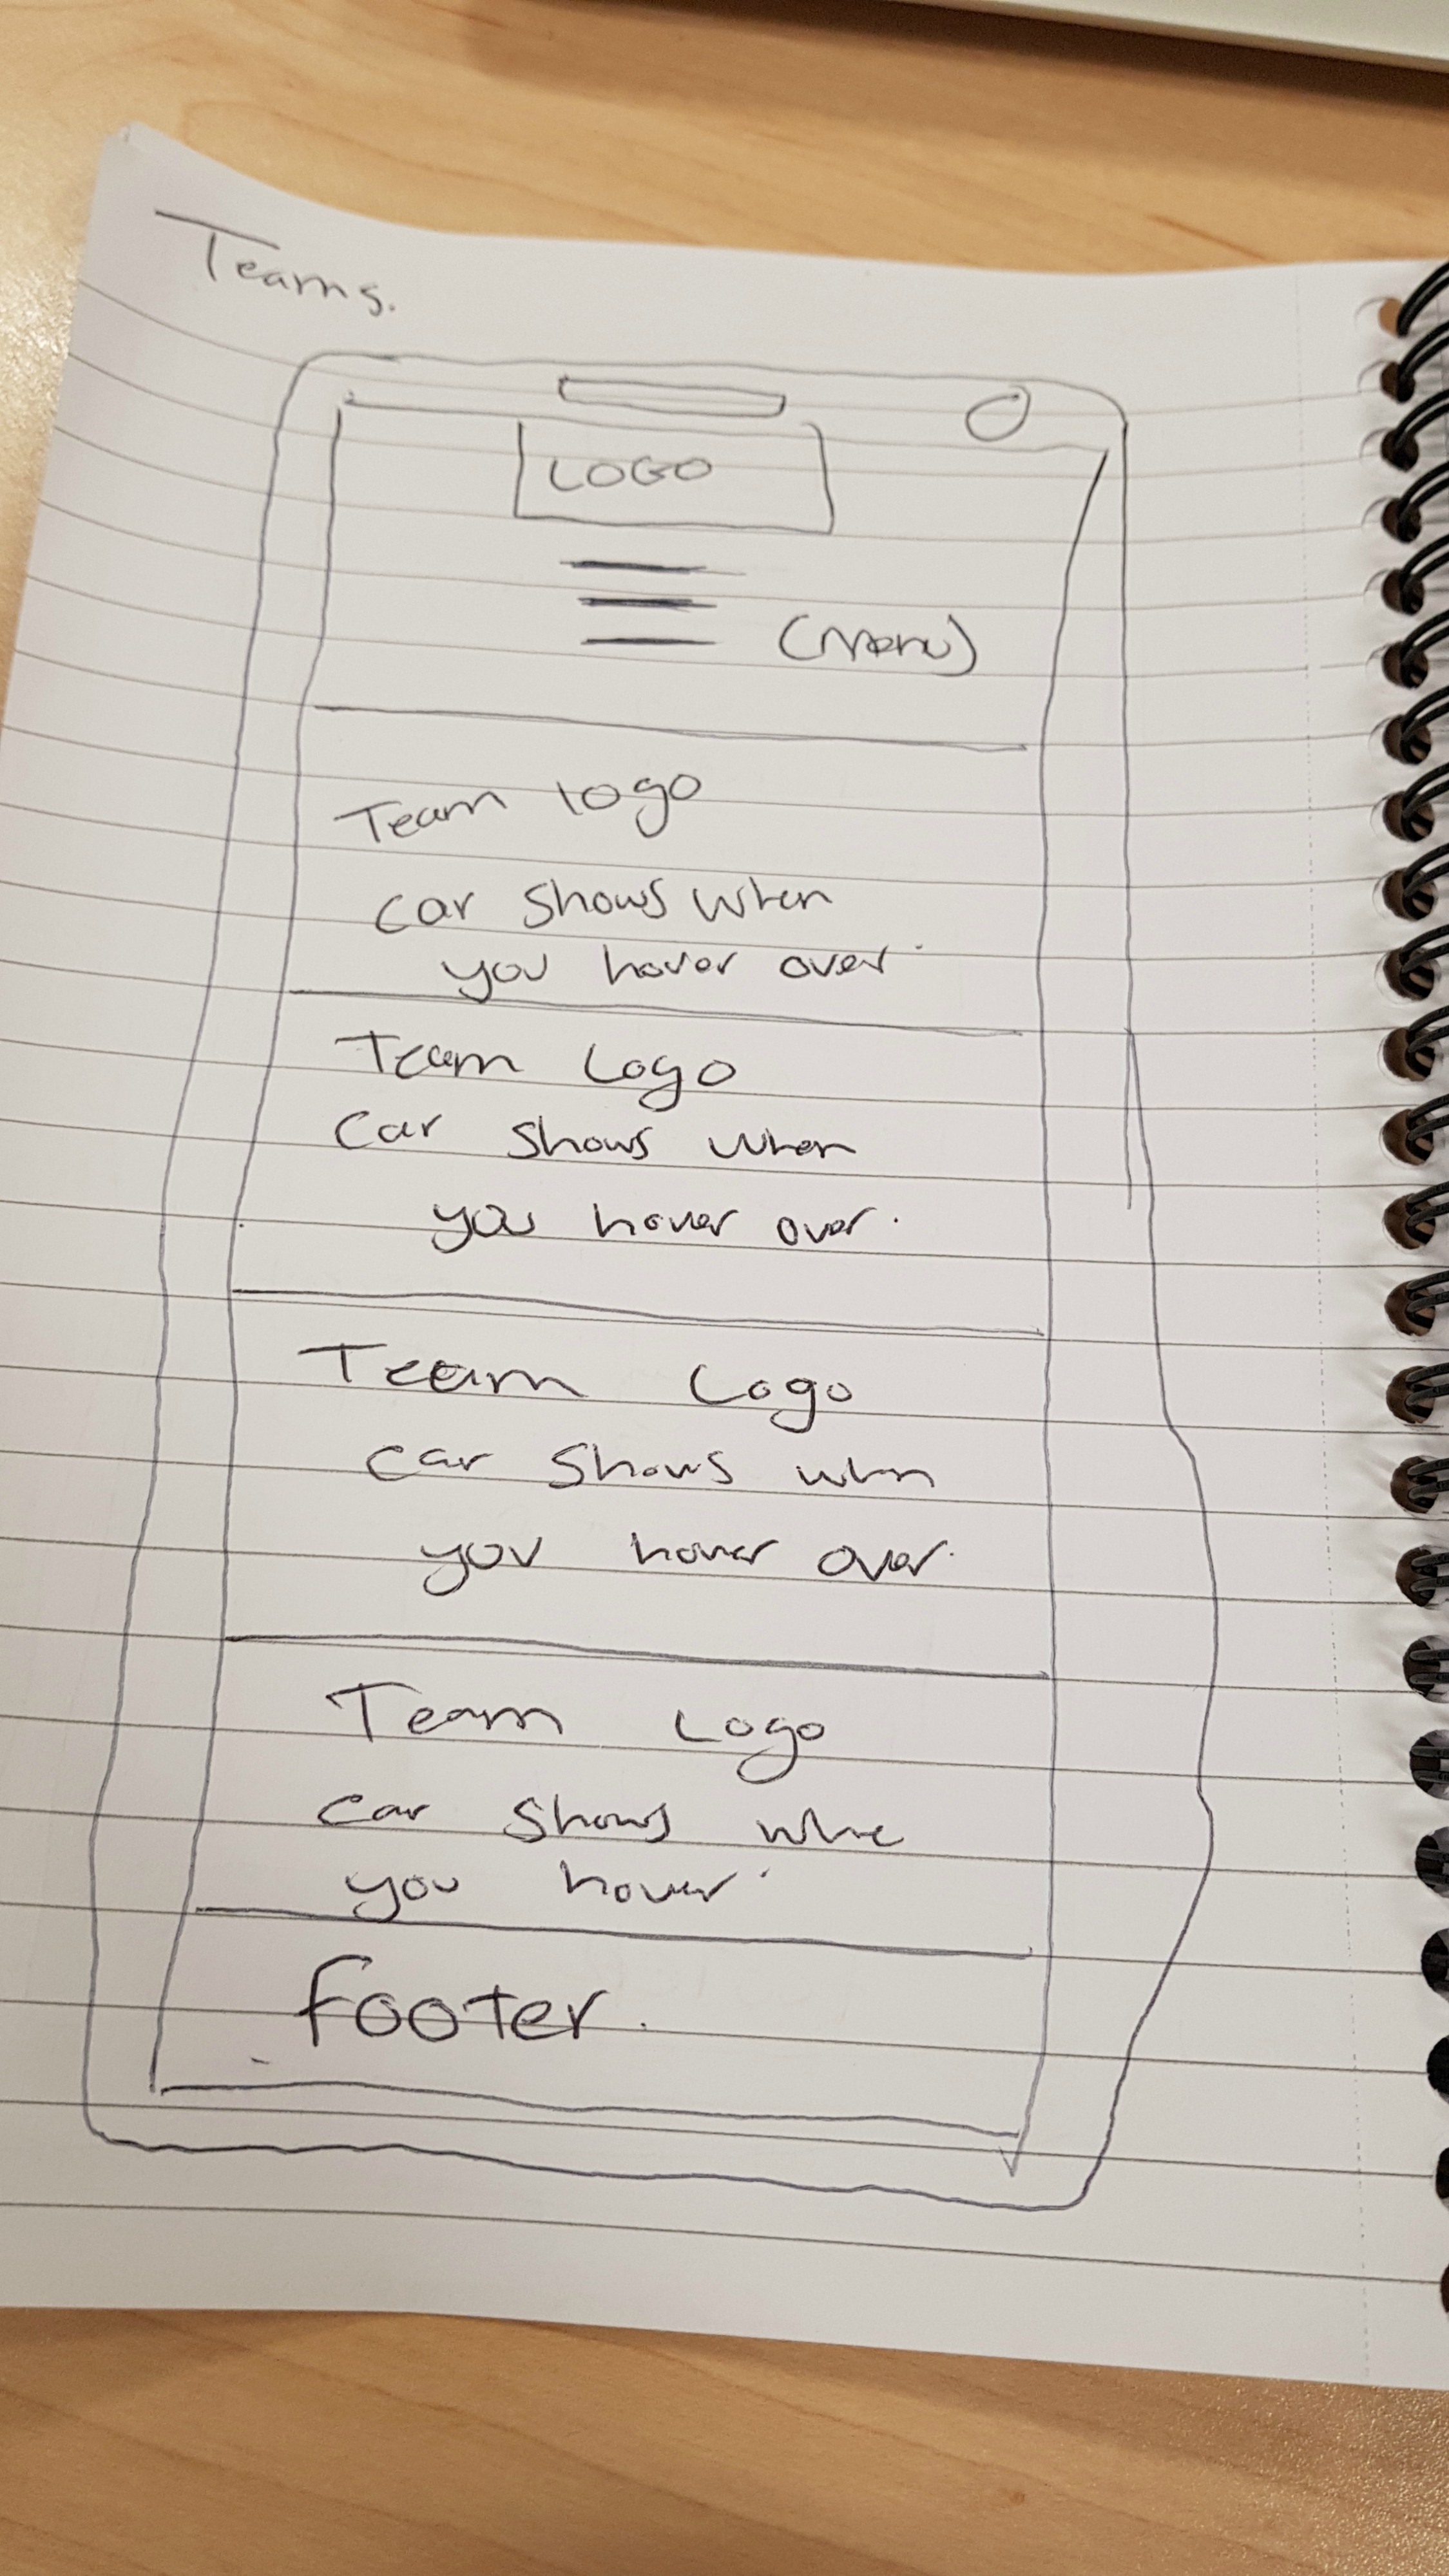 Teams.
LOGO
(Menu)
Team logo
car shows when
you hover over
Team Logo
Car shows when
you hover over.
Team Logo
car shows when
you hover over.
Team Logo
car shows whe
you hover
footer.